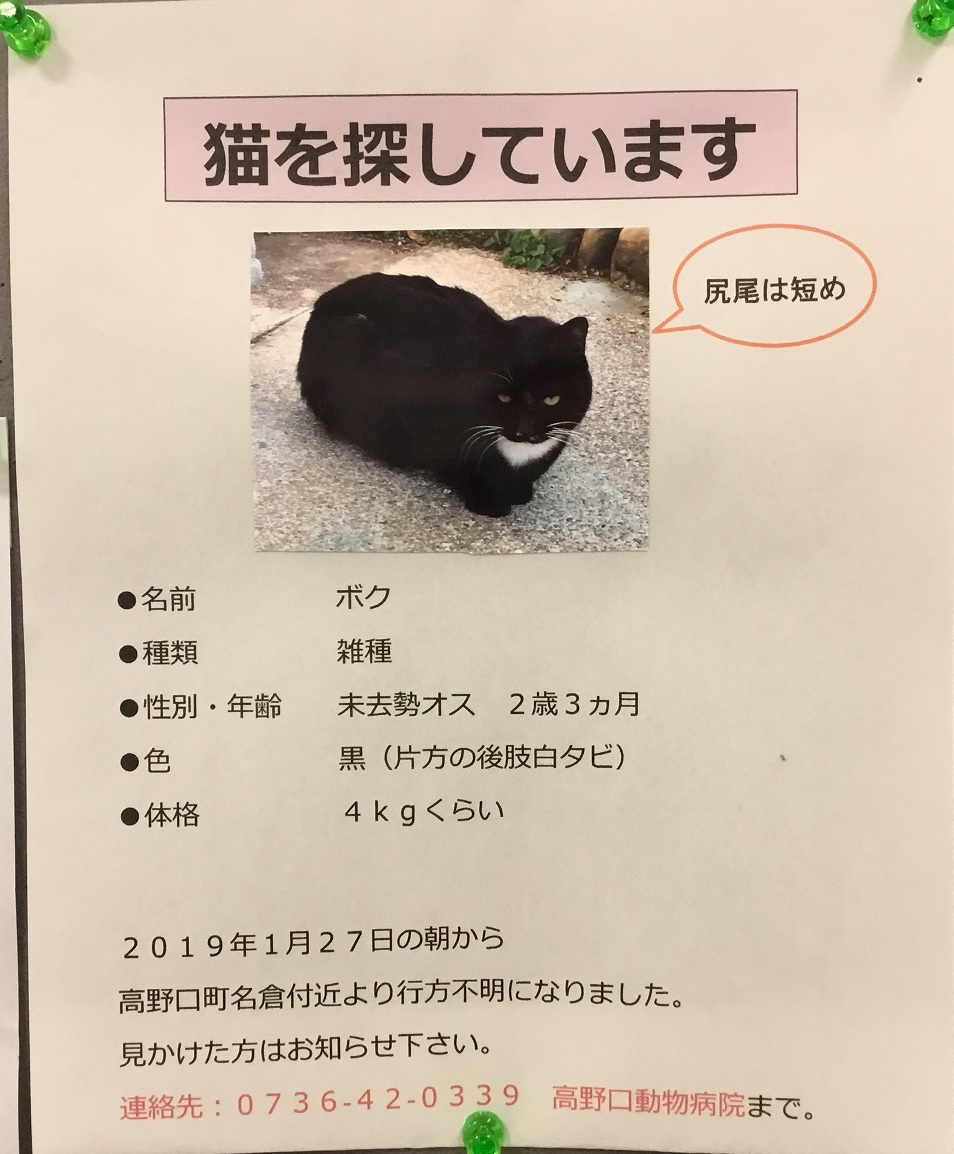 猫を探しています
尻尾は短め
●名前 ボク
●種類 雑種
●性別・年齢 未去勢オス ２歳３ヵ月
●色 黒（片方の後肢白タビ）
●体格 ４ｋｇくらい
２０１９年１月２７日の朝から
高野口町名倉付近より行方不明になりました。
見かけた方はお知らせ下さい。
連絡先：０７３６-４２-０３３９ 高野口動物病院まで。